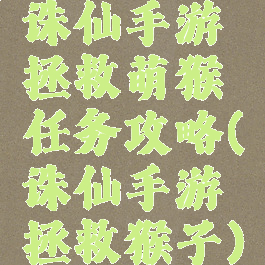 诛仙手游
拯救萌猴
任务攻略(
诛仙手游
拯救猴子)